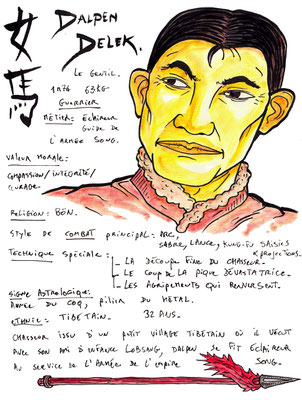 女馬
DALPEN
DELEK.
LE GENTIL.
1m76 63KG
GUERRIER
MÉTIER: ÉCLAIREUR
GUIDE DE
L'ARMÉE SONG.
VALEUR MORALE:
COMPASSION/INTÉGRITÉ/
COURAGE.
RELIGION: BÖN.
STYLE DE COMBAT PRINCIPAL: ARC,
SABRE, LANCE, KUNG-FU SAISIES
& PROJECTIONS.
TECHNIQUE SPÉCIALE:
- LA DÉCOUPE FINE DU CHASSEUR.
- LE COUP DE LA PIQUE DÉVASTATRICE.
- LES AGRIPEMENTS QUI RENVERSENT.
SIGNE ASTROLOGIQUE:
ANNÉE DU COQ, PILIER DU METAL.
ETHNIE: TIBÉTAIN. 32 ANS.
CHASSEUR ISSU D'UN PETIT VILLAGE TIBÉTAIN OÙ IL VECUT
AVEC SON AMI D'ENFANCE LOBSANG, DALPEN SE FIT ÉCLAIREUR
AU SERVICE DE L'ARMÉE DE L'EMPIRE SONG.